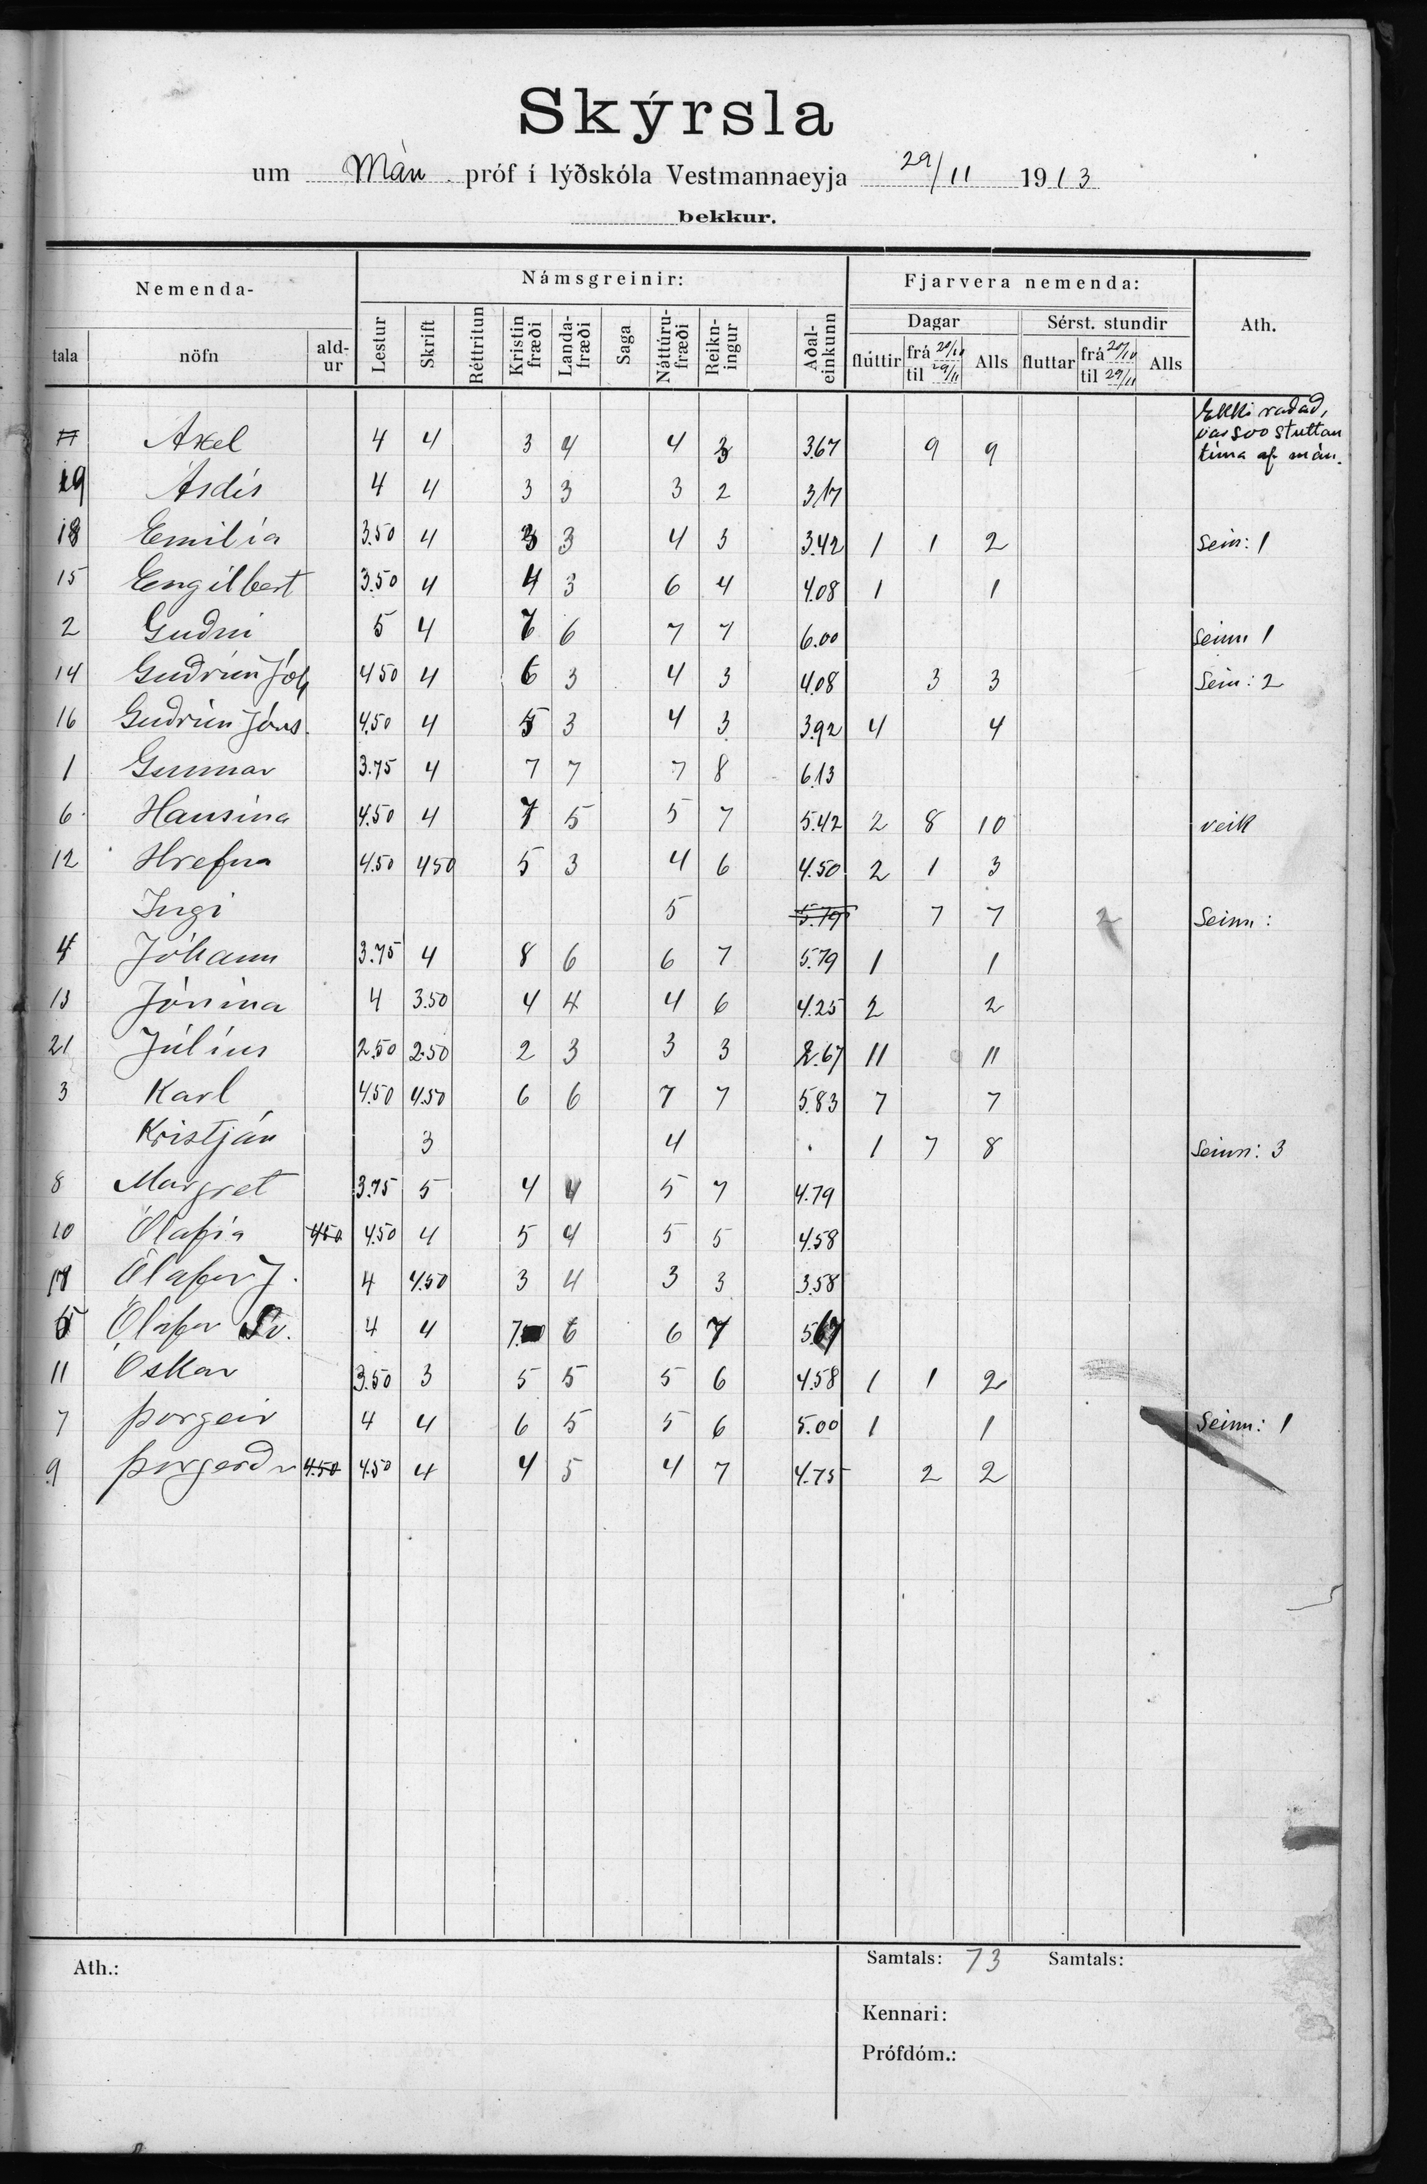 Skýrsla
um Mán. próf í lýðskóla Vestmannaeyja 29/11 1913
bekkur.
Nemenda- Námsgreinir: Fjarvera nemenda: Ath.
Dagar Sérst. stundir
tala nöfn ald-ur Lestur Skrift Réttritun Kristin fræði Landa-fræði Saga Náttúru-fræði Reikn-ingur Aðal-einkunn fluttir frá 20/10 til 29/11 Alls fluttar frá 20/10 til 29/11 Alls
Ekki raðað,
var svo stuttan
Axel 4 4 3 4 4 3 3.67 9 9 tíma af mán.
19 Ásdís 4 4 3 3 3 2 3.17
18 Emilía 3.50 4 3 3 4 3 3.42 1 1 2 Sein: 1
15 Engilbert 3.50 4 4 3 6 4 4.08 1 1
2 Guðni 5 4 7 6 7 7 6.00 Seinn 1
14 Guðrún Jóh 4.50 4 6 3 4 3 4.08 3 3 Sein: 2
16 Guðrún Jóns. 4.50 4 5 3 4 3 3.92 4 4
1 Gunnar 3.75 4 7 7 7 8 6.13
6 Hansína 4.50 4 7 5 5 7 5.42 2 8 10 veik
12 Hrefna 4.50 4.50 5 3 4 6 4.50 2 1 3
Ingi 5 5.79 7 7 2 Seinn:
4 Jóhann 3.75 4 8 6 6 7 5.79 1 1
13 Jónína 4 3.50 4 4 4 6 4.25 2 2
21 Júlíus 2.50 2.50 2 3 3 3 2.67 11 11
3 Karl 4.50 4.50 6 6 7 7 5.83 7 7
Kristján 3 4 1 7 8 Seinn: 3
8 Margret 3.75 5 4 4 5 7 4.79
10 Ólafía 4.50 4.50 4 5 4 5 5 4.58
17 Ólafur J. 4 4.50 3 4 3 3 3.58
5 Ólafur Sv. 4 4 7 6 6 7 5.67
11 Óskar 3.50 3 5 5 5 6 4.58 1 1 2
7 Þorgeir 4 4 6 5 5 6 5.00 1 1 Seinn: 1
9 Þorgerður 4.50 4.50 4 4 5 4 7 4.75 2 2
Ath.: Samtals: 73 Samtals:
Kennari:
Prófdóm.: